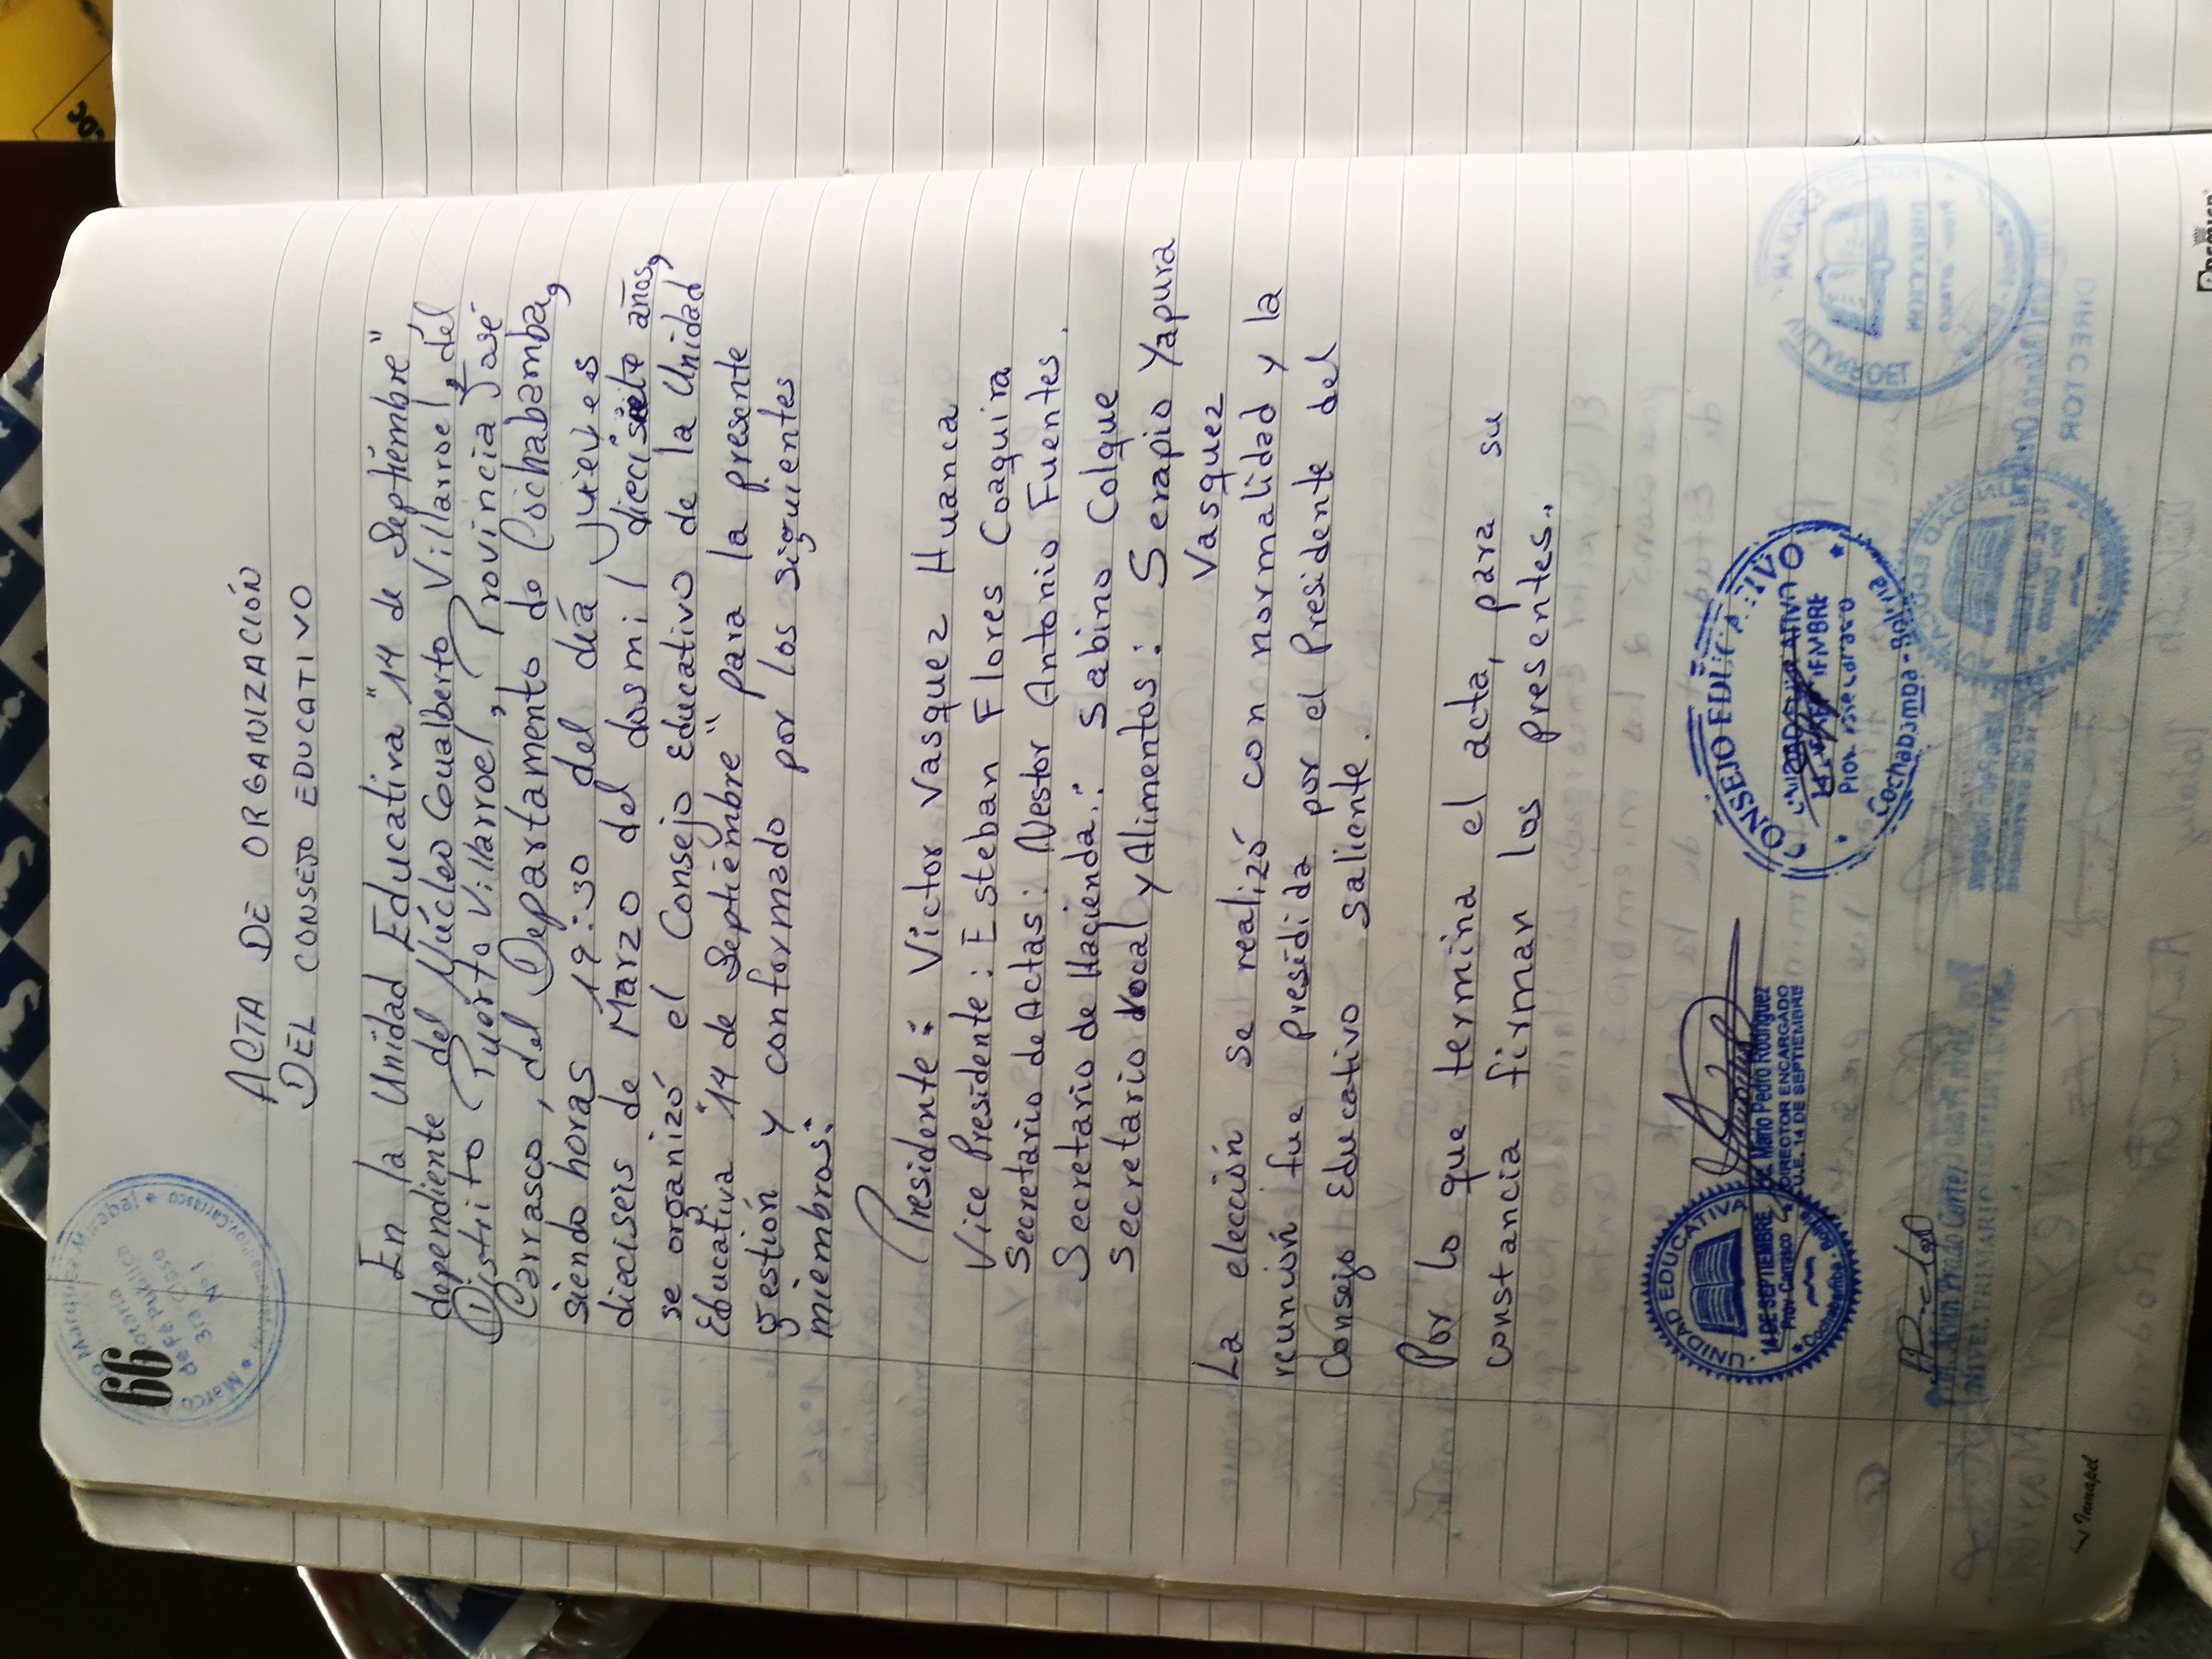 66
ACTA DE ORGANIZACIÓN
DEL CONSEJO EDUCATIVO
En la Unidad Educativa "14 de Septiémbre"
dependiente del Núcleo Gualberto Villarroel, del
Distrito Puerto Villarroel, Provincia José
Carrasco, del Departamento de Cochabamba,
siendo horas 19:30 del diá jueves
dieciseis de Marzo del dosmil diecisiete años,
se organizó el Consejo Educativo de la Unidad
Educativa "14 de Septiémbre" para la presente
gestión y conformado por los siguientes
miembros:
Presidente: Victor Vasquez Huanca
Vice Presidente: Esteban Flores Coaquira
Secretario de Actas: Nestor Antonio Fuentes.
Secretario de Hacienda: Sabino Colque
Secretario Vocal y Alimentos: Serapio Yapura
Vasquez
La elección se realizó con normalidad y la
reunión fue presidida por el Presidente del
Consejo Educativo saliente.
Por lo que termina el acta, para su
constancia firman los presentes.
UNIDAD EDUCATIVA
14 DE SEPTIEMBRE
Prov. Carrasco
Cochabamba - Bolivia
Mario Pedro Rodriguez
DIRECTOR ENCARGADO
U.E. 14 DE SEPTIEMBRE
CONSEJO EDUCATIVO
UNIDAD EDUCATIVA
14 SEPTIEMBRE
Prov. José Carrasco
Cochabamba - Bolivia
Inmapel